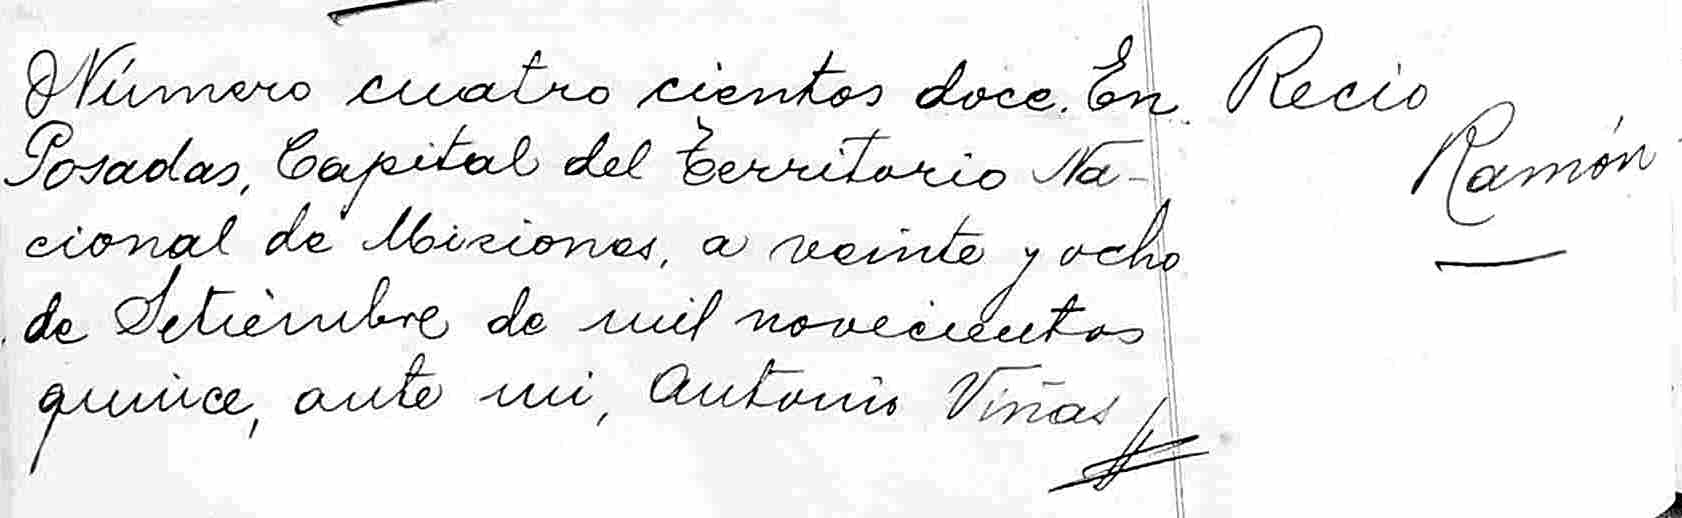 Número cuatro cientos doce. En
Posadas, Capital del Territorio Na-
cional de Misiones, a veinte y ocho
de Setiembre de mil novecientos
quince, ante mi, Antonio Viñas
Recio
Ramón